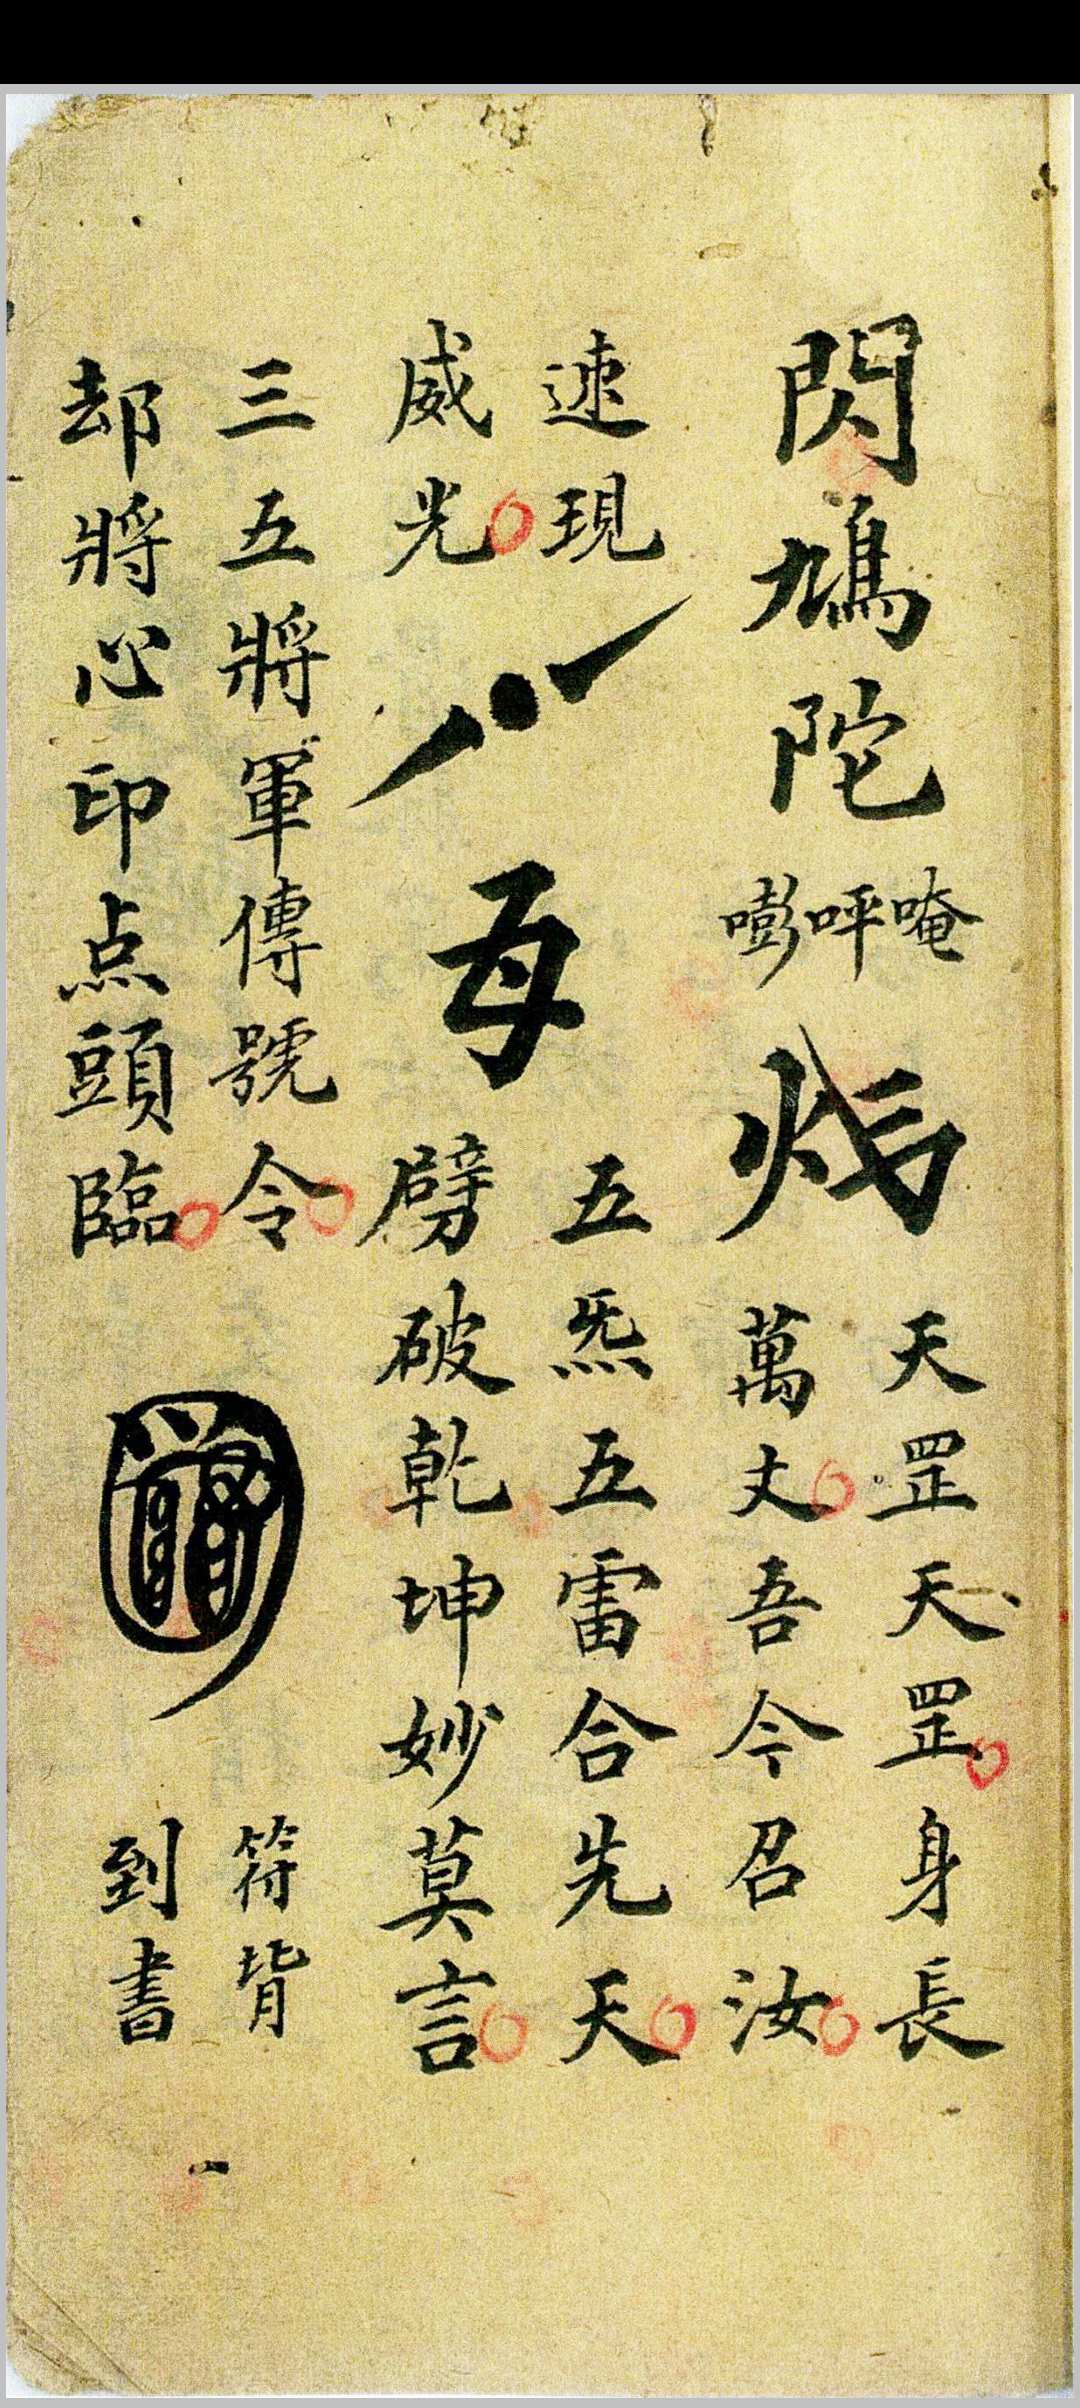 閃鳩陀
唵
呼
嘭
天罡天罡身長
萬丈吾今召汝
速現
威光
五炁五雷合先天
劈破乾坤妙莫言
三五將軍傳號令
却將心印点頭臨
符背
到書